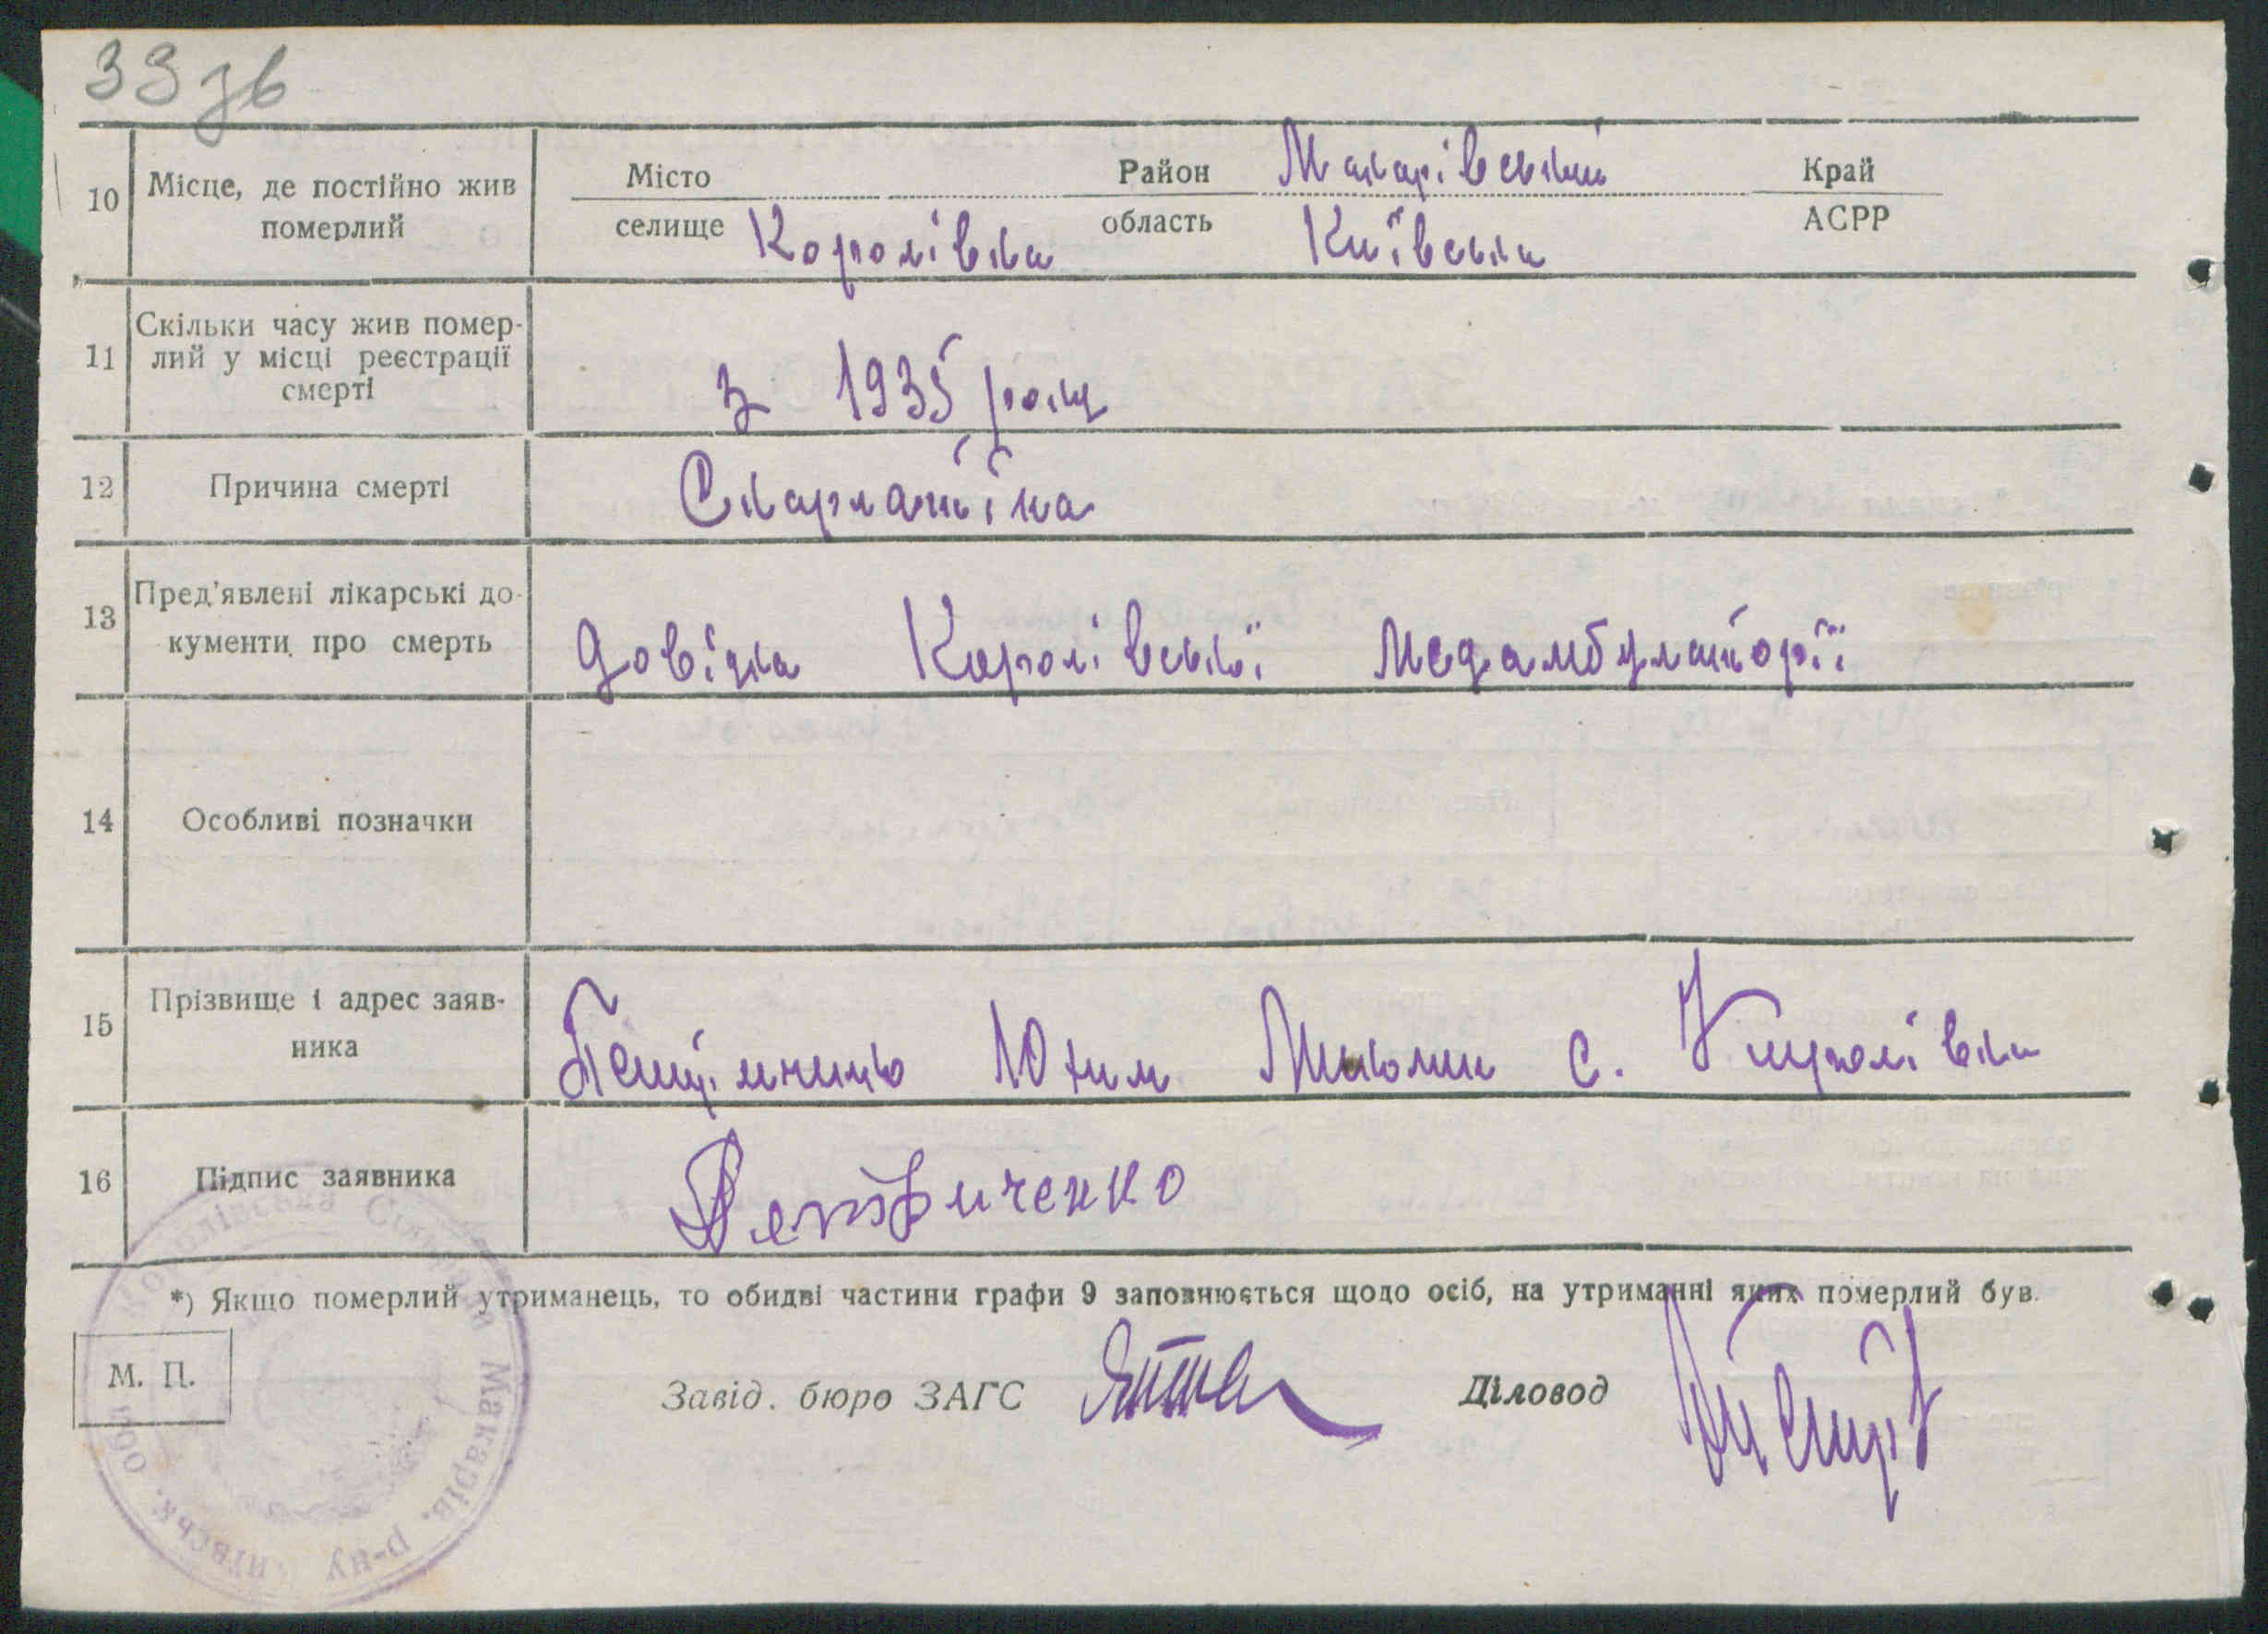 33 зв
10 Місце, де постійно жив померлий
Місто Район Макарівський Край
селище Королівка область Київська АСРР
11 Скільки часу жив помер-
лий у місці реєстрації
смерті
з 1935 року
12 Причина смерті Скарлатіна
13 Пред'явлені лікарські до-
кументи про смерть
довідка Королівської медамбулаторії
14 Особливі позначки
15 Прізвище і адрес заяв-
ника
Юхим с. Королівка
16 Підпис заявника
*) Якщо померлий утриманець, то обидві частини графи 9 заповнюється щодо осіб, на утриманні яких померлий був.
М. П.
Завід. бюро ЗАГС Діловод
Королівська Сільська Рада Макарів. р-ну Київськ. обл.